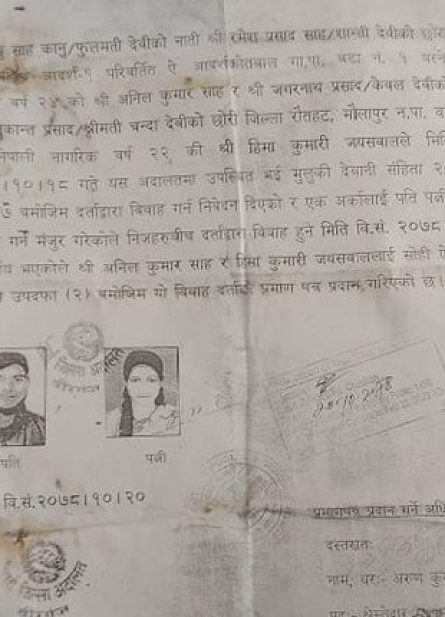 साह कानु/फुलमती देवीको नाती श्री रमेश प्रसाद साह/शान्ती देवीको छोरा
आदर्श-१ परिवर्तित ऐ आदर्शकोतवाल गा.पा. वडा नं. १ बस्ने
वर्ष २४ को श्री अनिल कुमार साह र श्री जगरनाथ प्रसाद/केवल देवीको
कान्त प्रसाद/श्रीमती चन्दा देवीको छोरी जिल्ला रौतहट, मौलापुर न.पा. व
नेपाली नागरिक वर्ष २२ की श्री हिमा कुमारी जयसवालले मिति
।१०।१८ गते यस अदालतमा उपस्थित भई मुलुकी देवानी संहिता २
बमोजिम दर्ताद्वारा विवाह गर्न निवेदन दिएको र एक अर्कालाई पति पत्नी
गर्न मंजुर गरेकोले निजहरुबीच दर्ताद्वारा विवाह हुने मिति वि.सं. २०७८
भएकोले श्री अनिल कुमार साह र हिमा कुमारी जयसवाललाई सोही ऐ
उपदफा (२) बमोजिम यो विवाह दर्ताको प्रमाण पत्र प्रदान गरिएको छ।
पति
पत्नी
वि.सं.२०७८।१०।२०
प्रमाणपत्र प्रदान गर्ने अधि
दस्तखतः
जिल्ला अदालत
नाम, थरः- अरुण कु
पदः- श्रेस्तेदार